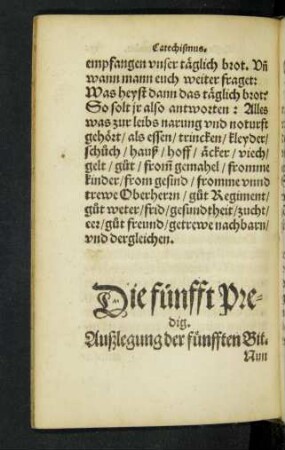 Catechismus.
empfangen vnser täglich brot. Vñ
wann mann euch weiter fraget:
Was heyst dann das täglich brot?
So solt jr also antworten: Alles
was zur leibs narung vnd noturft
gehört/ als essen/ trincken/ kleyder/
schůch/ hauß/ hoff/ äcker/ viech/
gelt/ gůt/ from̃ gemahel/ fromme
kinder/ from gesind/ fromme vnnd
trewe Oberherrn/ gůt Regiment/
gůt weter/ frid/ gesundtheit/ zucht/
eer/ gůt freund/ getrewe nachbarn/
vnd dergleichen.
Die fünfft Pre-
dig.
Außlegung der fünfften Bit.
Nun